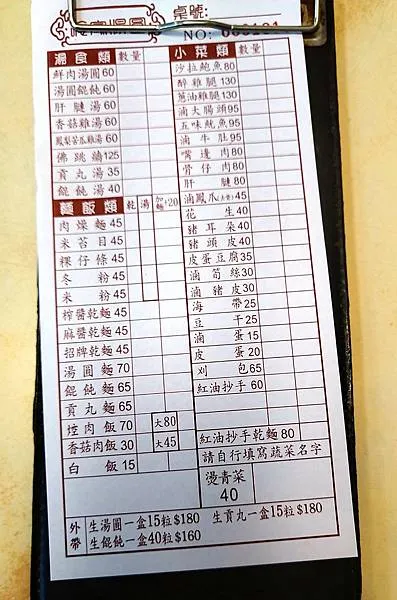 桌號:
NO:
湯食類 數量
鮮肉湯圓 60
湯圓餛飩 60
肝膢湯 60
香菇雞湯 60
鳳梨苦瓜雞湯 60
佛跳牆 125
貢丸湯 35
餛飩湯 40
麵飯類 乾 湯 加麵+20
肉燥麵 45
米苔目 45
粿仔條 45
冬粉 45
米粉 45
榨醬乾麵 45
麻醬乾麵 45
招牌乾麵 45
湯圓麵 70
餛飩麵 65
貢丸麵 65
焢肉飯 70 大80
香菇肉飯 30 大45
白飯 15
小菜類 數量
沙拉鮑魚 80
醉雞腿 130
蔥油雞腿 130
滷大腸頭 95
五味魷魚 95
滷牛肚 95
嘴邊肉 80
骨仔肉 80
肝膢 80
滷鳳爪 45
花生 40
豬耳朵 40
豬頭皮 40
皮蛋豆腐 35
滷筍絲 30
滷豬皮 30
海帶 25
豆干 25
滷蛋 15
皮蛋 20
刈包 65
紅油抄手 60
紅油抄手乾麵 80
請自行填寫蔬菜名字
燙青菜
40
外帶
生湯圓一盒15粒$180 生貢丸一盒15粒$180
生餛飩一盒40粒$160